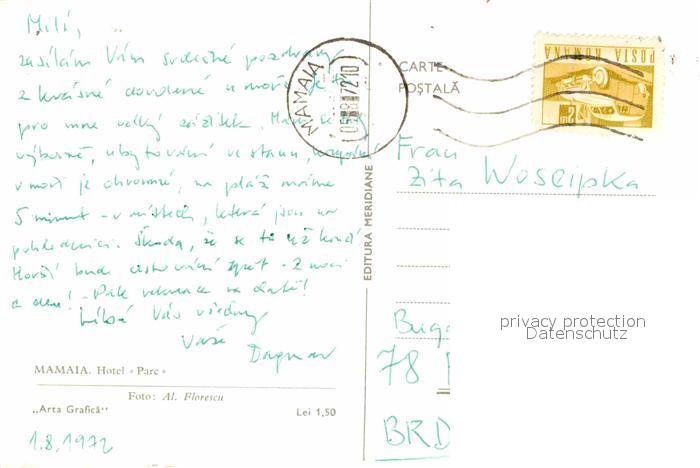 Milí,
zasílám Vám srdečné pozdravy
z krásné dovolené u moře. Je to
pro mne velký zážitek. Mám
výborné, ubytování ve stanu, koupání
v moři je ohromné, na pláž máme
5 minut - v místech, která jsou na
pohlednici. Škoda, že se to už končí.
Horší bude cestování zpět - 2 noci
a den! - Pak rekreace na chatě!
Líbá Vás všechny
Vaše Dagmar
MAMAIA. Hotel «Parc»
Foto: Al. Florescu
„Arta Grafică“ Lei 1,50
1.8.1972
EDITURA MERIDIANE
MAMAIA
CARTE
POȘTALĂ
POSTA ROMANA
Frau
Zita Woscipka
Buga
78
BRD
privacy protection
Datenschutz